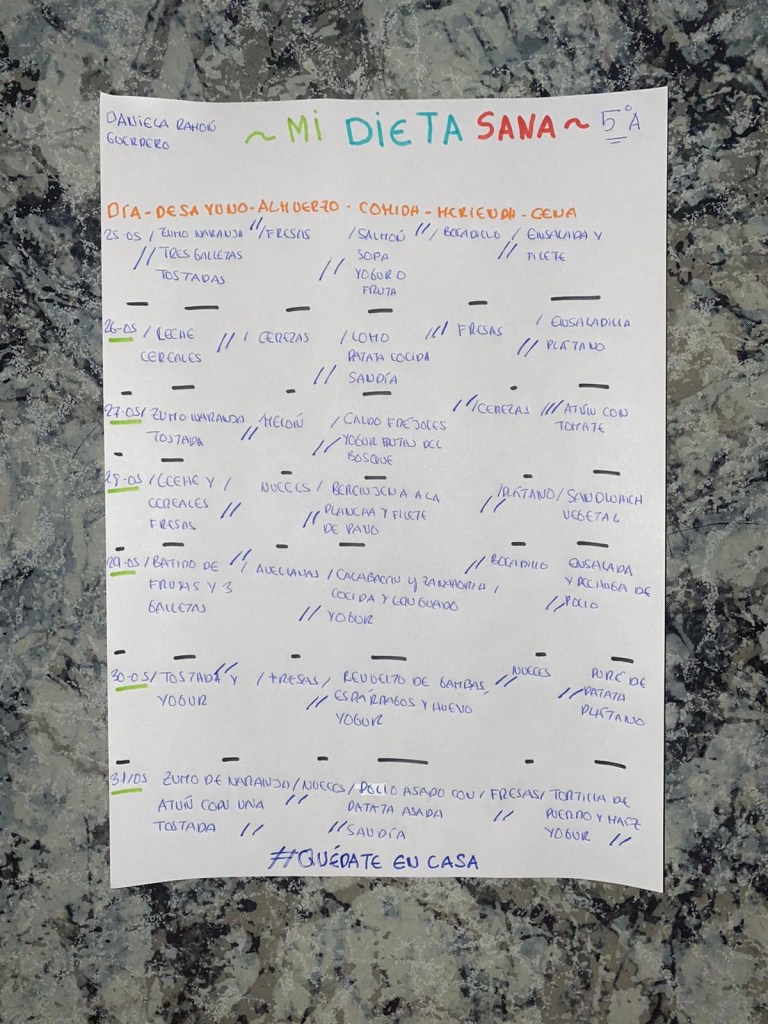 DANIELA RAMOÑ
GUERRERO
~ MI DIETA SANA ~
5ºA
DÍA - DESAYUNO - ALMUERZO - COMIDA - MERIENDA - CENA
25-05 / ZUMO NARANJA // FRESAS / SALMOÑ // BOCADILLO / ENSALADA Y
// TRES GALLETAS SOPA // FILETE
TOSTADAS // YOGUR O
FRUTA
26-05 / LECHE // / CEREZAS / LOMO /// FRESAS / ENSALADILLA
CEREALES PATATA COCIDA // PLÁTANO
// SANDÍA
27-05 / ZUMO NARANJA / MELOÑ / CALDO FREJOLES // CEREZAS /// ATÚÑ CON
TOSTADA // // YOGUR FRUTAS DEL TOMATE
BOSQUE
29-05 / LECHE Y / NUECES / BERENJENA A LA / PLÁTANO / SANDWUICH
CEREALES // // PLANCHA Y FILETE // VEGETAL
FRESAS DE PAVO
29-05 / BATIDO DE // / AVELLANAS / CALABACIN Y ZANAHORIA / // BOCADILLO ENSALADA
FRUTAS Y 3 COCIDA Y LENGUADO Y PECHUGA DE
GALLETAS // YOGUR // POLLO
30-05 / TOSTADA // Y / FRESAS / REVUELTO DE GAMBAS, // NUECES PURÉ DE
YOGUR // ESPÁRRAGOS Y HUEVO // PATATA
YOGUR PLÁTANO
31/05 ZUMO DE NARANJA / NUECES / POLLO ASADO CON / FRESAS / TORTILLA DE
ATÚÑ CON UNA // PATATA ASADA // PUERRO Y MAIZ
TOSTADA // // SANDÍA YOGUR //
#QUÉDATE EN CASA